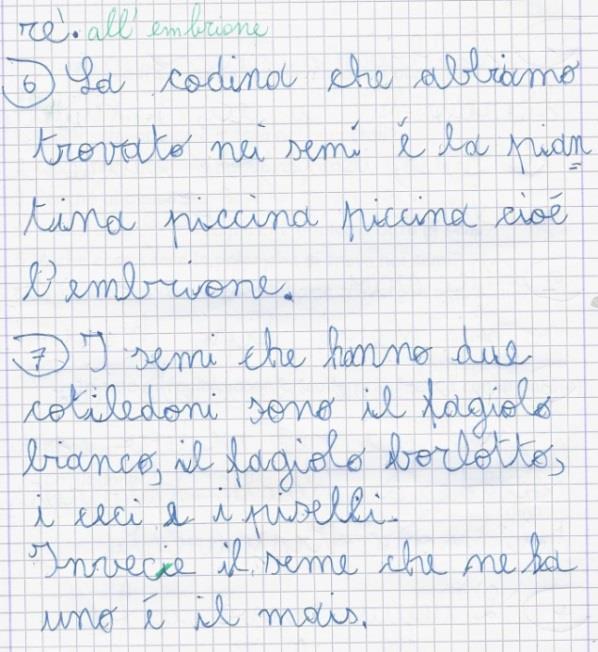 re'. all' embrione
6 La codina che abbiamo
trovato nei semi é la pian=
tina piccina piccina cioé
l'embrione.
7 I semi che hanno due
cotiledoni sono il fagiolo
bianco, il fagiolo borlotto,
i ceci e i piselli.
Invecie il seme che ne ha
uno é il mais.